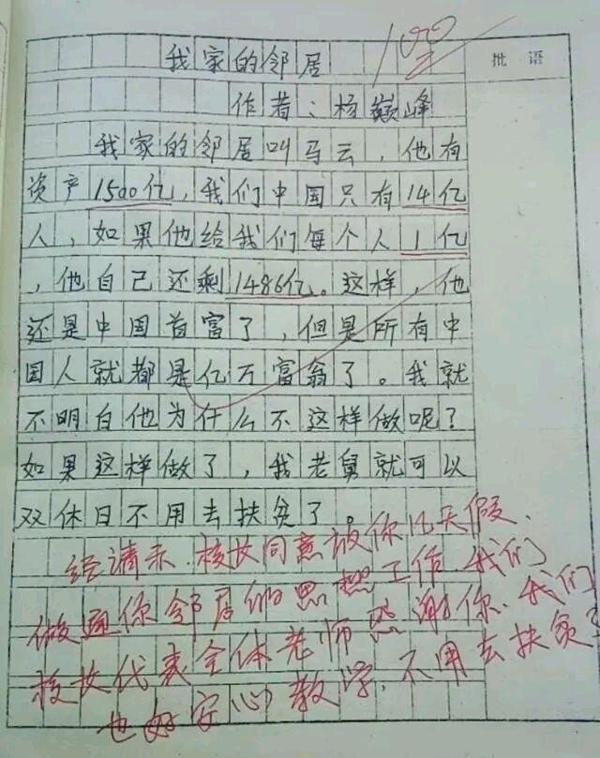 100
批语
我家的邻居
作者：杨巅峰
我家的邻居叫马云，他有
资产1500亿，我们中国只有14亿
人，如果他给我们每个人1亿
，他自己还剩1486亿。这样，他
还是中国首富了，但是所有中
国人就都是亿万富翁了。我就
不明白他为什么不这样做呢？
如果这样做了，我老舅就可以
双休日不用去扶贫了。
经请示，校长同意放你几天假，
做通你邻居的思想工作，我们
校长代表全体老师感谢你，我们
也好安心教学，不用去扶贫了